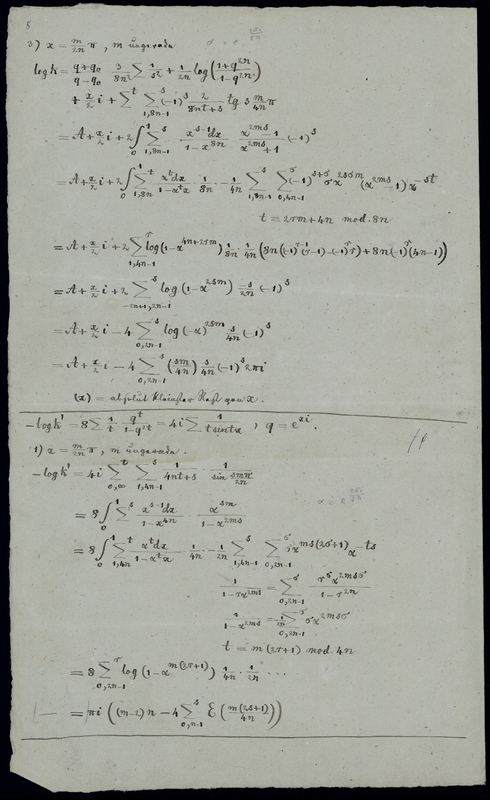 3) x = m/2n π, m ungerade α = e^{2πi/8n}
log k = (q+q₀)/(q−q₀) 3/8n² Σ 1/s² + 1/2n log((1+q^{2n})/(1−q^{2n}))
+ x/2 i + Σ^t Σ^s_{1,8n−1} (−1)^s 2/(8nt+s) tg s m/4n π
= A + x/2 i + 2 ∫₀¹ Σ^s_{1,8n−1} x^{s−1}dx/(1−x^{8n}) (α^{2ms}−1)/(α^{2ms}+1) (−1)^s
= A + x/2 i + 2 ∫₀¹ Σ^t_{1,8n} α^t dx/(1−α^t x) · 1/8n · −1/4n Σ^s_{1,8n−1} Σ^σ_{0,4n−1} (−1)^{s+σ} σ α^{2sσm} (α^{2ms}−1) α^{−st}
t = 2rm+4n mod. 8n
= A + x/2 i + 2 Σ^r_{1,4n−1} log(1−α^{4n+2rm}) 1/8n · 1/4n (8n(−1)^{r−1}(r−1)−(−1)^r r)+8n(−1)^r(4n−1))
= A + x/2 i + 2 Σ^s_{−2n+1,2n−1} log(1−α^{2sm}) −s/2n (−1)^s
= A + x/2 i − 4 Σ^s_{0,2n−1} log(−α)^{2sm} s/4n (−1)^s
= A + x/2 i − 4 Σ^s_{0,2n−1} (sm/4n) s/4n (−1)^s 2πi
(x) = absolut kleinster Rest von x.
−log k' = 8 Σ 1/t q^t/(1−q^{2t}) = 4i Σ 1/(t sin tx), q = e^{xi}.
1) x = m/2n π, m ungerade.
−log k' = 4i Σ^t_{0,∞} Σ^s_{1,4n−1} 1/(4nt+s) · 1/(sin smπ/2n)
α = e^{2πi/4n}
= 8 ∫₀¹ Σ^s x^{s−1}dx/(1−x^{4n}) · α^{sm}/(1−α^{2ms})
= 8 ∫₀¹ Σ^t_{1,4n} α^t dx/(1−α^t x) · 1/4n · −1/2n Σ^s_{1,4n−1} Σ^σ_{0,2n−1} σ α^{ms(2σ+1)} α^{−ts}
1/(1−rα^{2ms}) = Σ^σ_{0,2n−1} r^σ α^{2msσ}/(1−r^{2n})
1/(1−α^{2ms}) = −1/2n Σ^σ_{0,2n−1} σ α^{2msσ}
t = m(2r+1) mod. 4n
= 8 Σ^r_{0,2n−1} log(1−α^{m(2r+1)}) 1/4n · 1/2n · · ·
= πi ((m−2)n − 4 Σ^s_{0,n−1} E(m(2s+1)/4n))